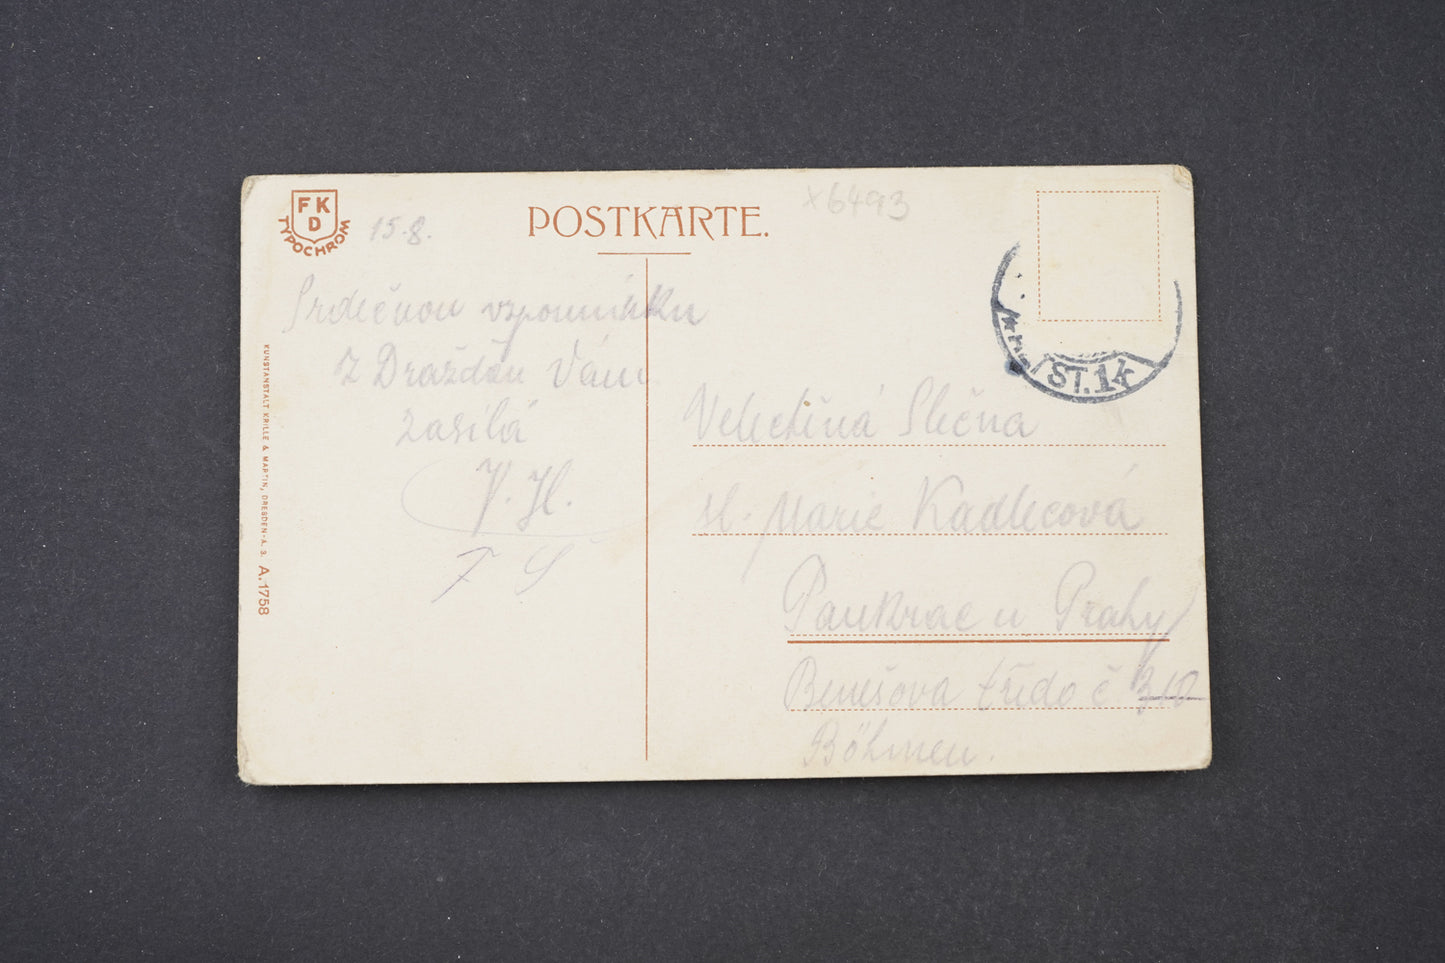 FK
D
TYPOCHROM
15.8.
POSTKARTE.
x6493
ST.1k
Srdečnou vzpomínku
Z Dražďan Vám
zasílá
V. H.
F S
Velectěná Slečna
sl. Marie Kadlecová
Pankrac u Prahy
Benešova třída č 310
Böhmen.
KUNSTANSTALT KRILLE & MARTIN, DRESDEN-A. 3. A. 1758